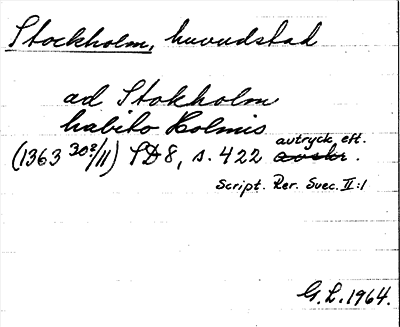 Stockholm, huvudstad
ad Stokholm
habito Holmis
(1363 30?/11) SD8, s. 422 avtryck eft. avskr.
Script. Rer. Suec. II:1
G.L. 1964.